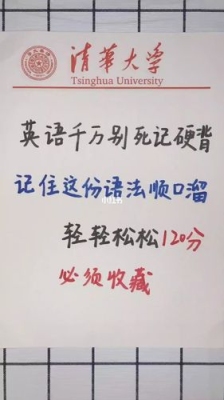 清華大学
Tsinghua University
英语千万别死记硬背
记住这份语法顺口溜
小红书
轻轻松松120分
必须收藏